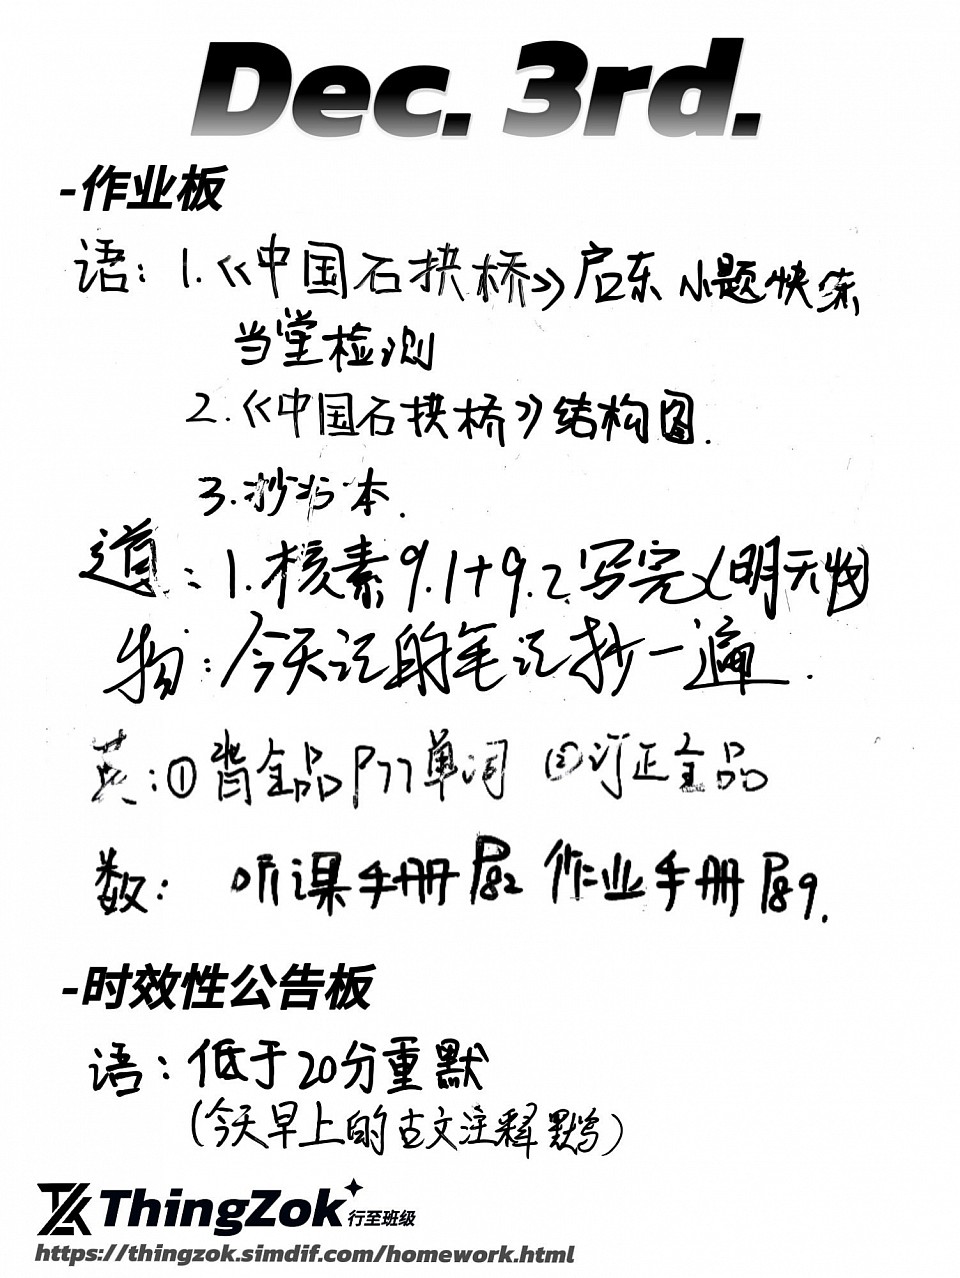 Dec. 3rd.
-作业板
语：1.《中国石拱桥》启东 小题快练
当堂检测
2.《中国石拱桥》结构图.
3.抄 本.
道：1.核素9.1+9.2写完(明天收)
物：今天记的笔记抄一遍.
英：①背全品P77单词 ②订正全品
数： 听课手册P82 作业手册P89.
-时效性公告板
语：低于20分重默
(今天早上的古文注释默写)
ThingZok 行至班级
https://thingzok.simdif.com/homework.html